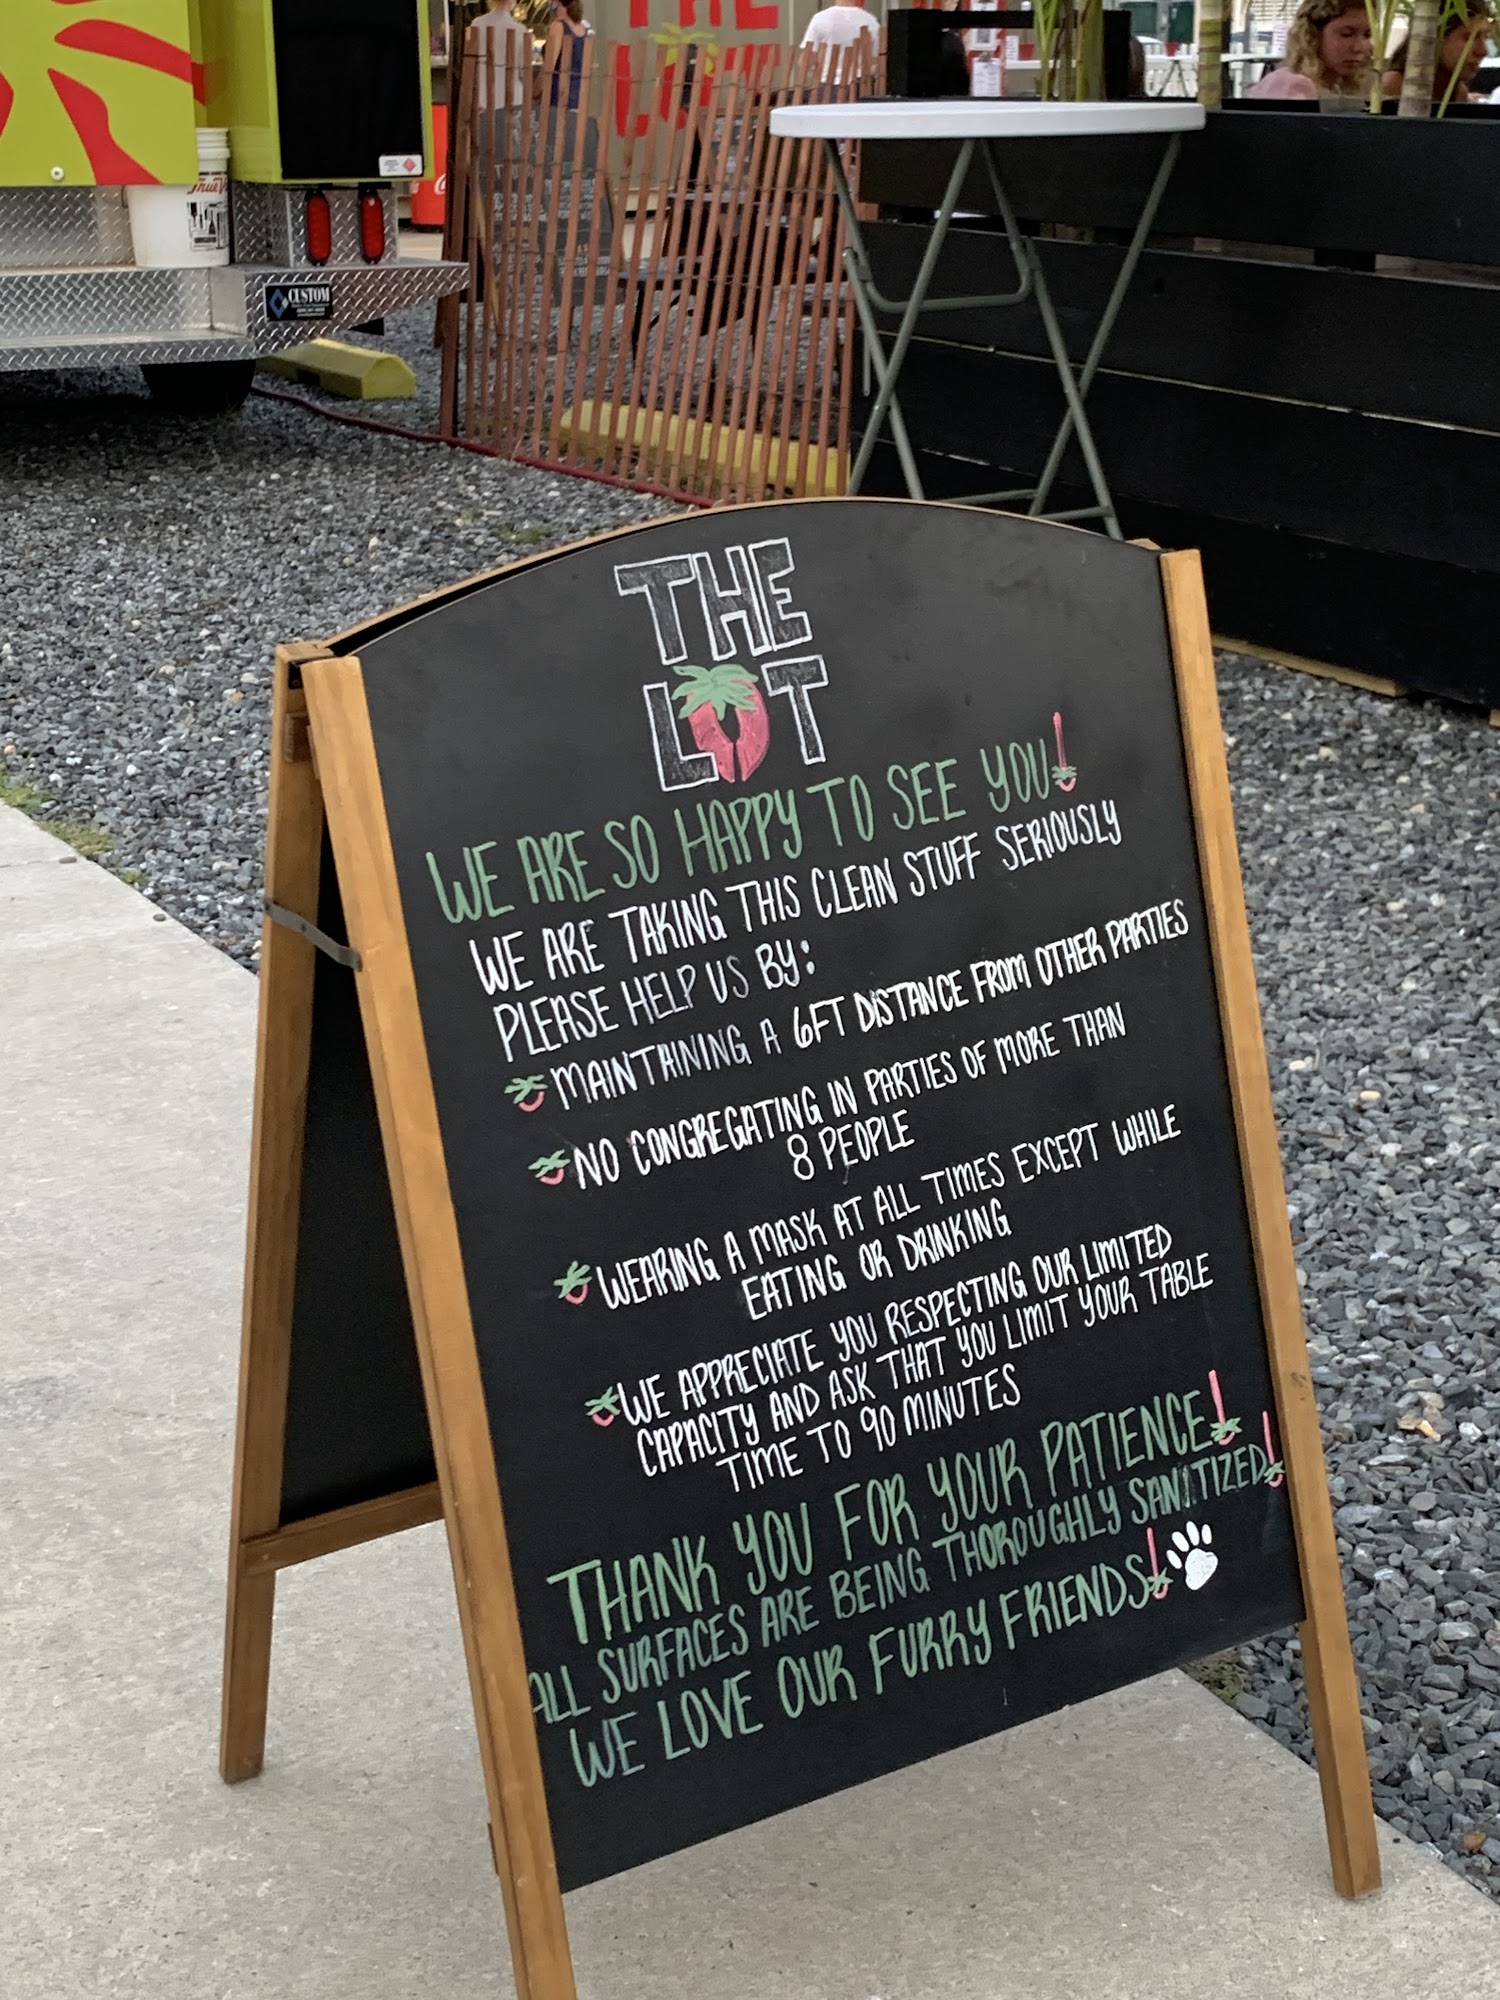 THE
THE
LOT
WE ARE SO HAPPY TO SEE YOU!
WE ARE TAKING THIS CLEAN STUFF SERIOUSLY
PLEASE HELP US BY:
MAINTAINING A 6FT DISTANCE FROM OTHER PARTIES
NO CONGREGATING IN PARTIES OF MORE THAN
8 PEOPLE
WEARING A MASK AT ALL TIMES EXCEPT WHILE
EATING OR DRINKING
WE APPRECIATE YOU RESPECTING OUR LIMITED
CAPACITY AND ASK THAT YOU LIMIT YOUR TABLE
TIME TO 90 MINUTES
THANK YOU FOR YOUR PATIENCE!
ALL SURFACES ARE BEING THOROUGHLY SANITIZED!
WE LOVE OUR FURRY FRIENDS!
CUSTOM